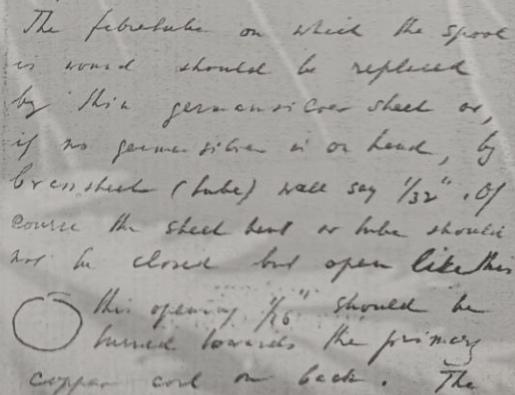 The fibretube on which the spool
is wound should be replaced
by thin germansilver sheet or,
if no german silver is on hand, by
brass sheet (tube) wall say 1/32". Of
course the sheet bent or tube should
not be closed but open like this
this opening 1/16" should be
turned towards the primary
copper coil on back. The